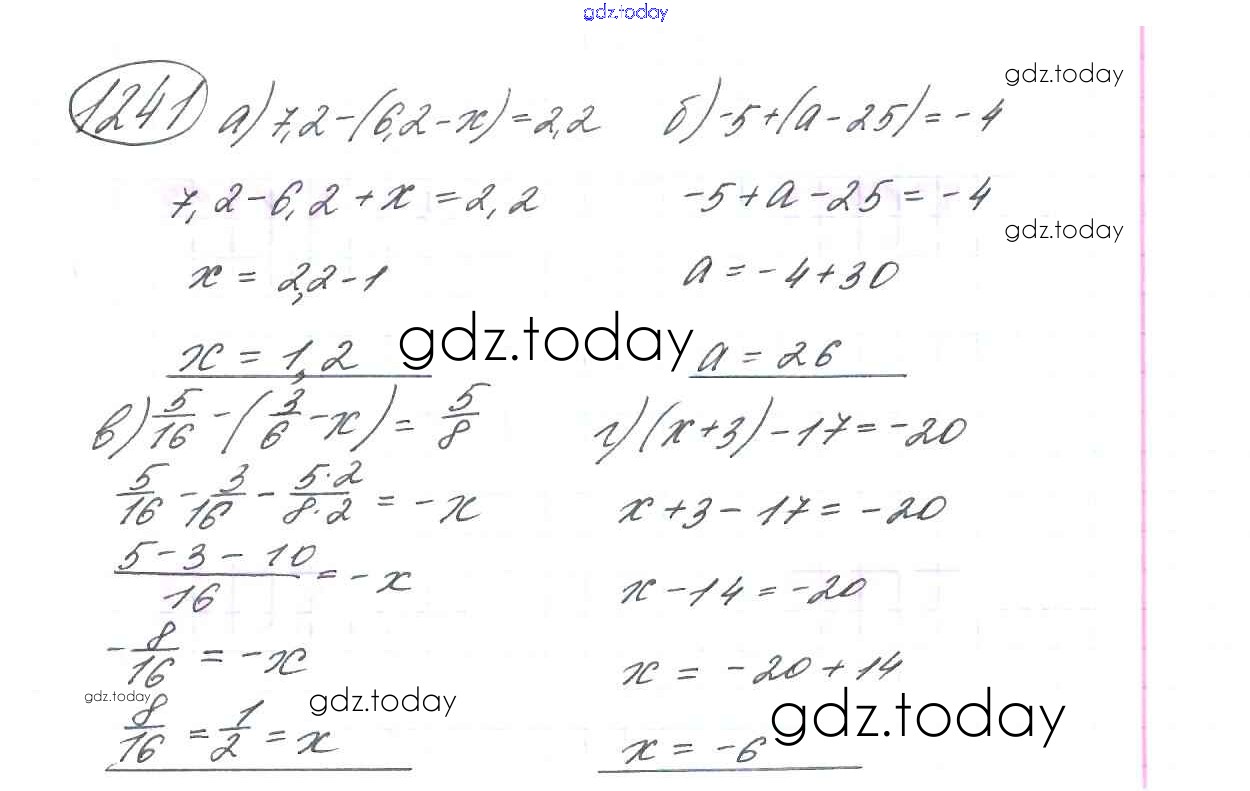 gdz.today
1241 а) 7,2-(6,2-x)=2,2 б) -5+(a-25)=-4
gdz.today
7,2-6,2+x=2,2 -5+a-25=-4
gdz.today
x=2,2-1 a=-4+30
gdz.today
x=1,2 a=26
в) 5/16-(3/6-x)=5/8 г) (x+3)-17=-20
5/16-3/16-5·2/8·2=-x x+3-17=-20
5-3-10/16=-x x-14=-20
-8/16=-x x=-20+14
gdz.today gdz.today gdz.today
8/16=1/2=x x=-6